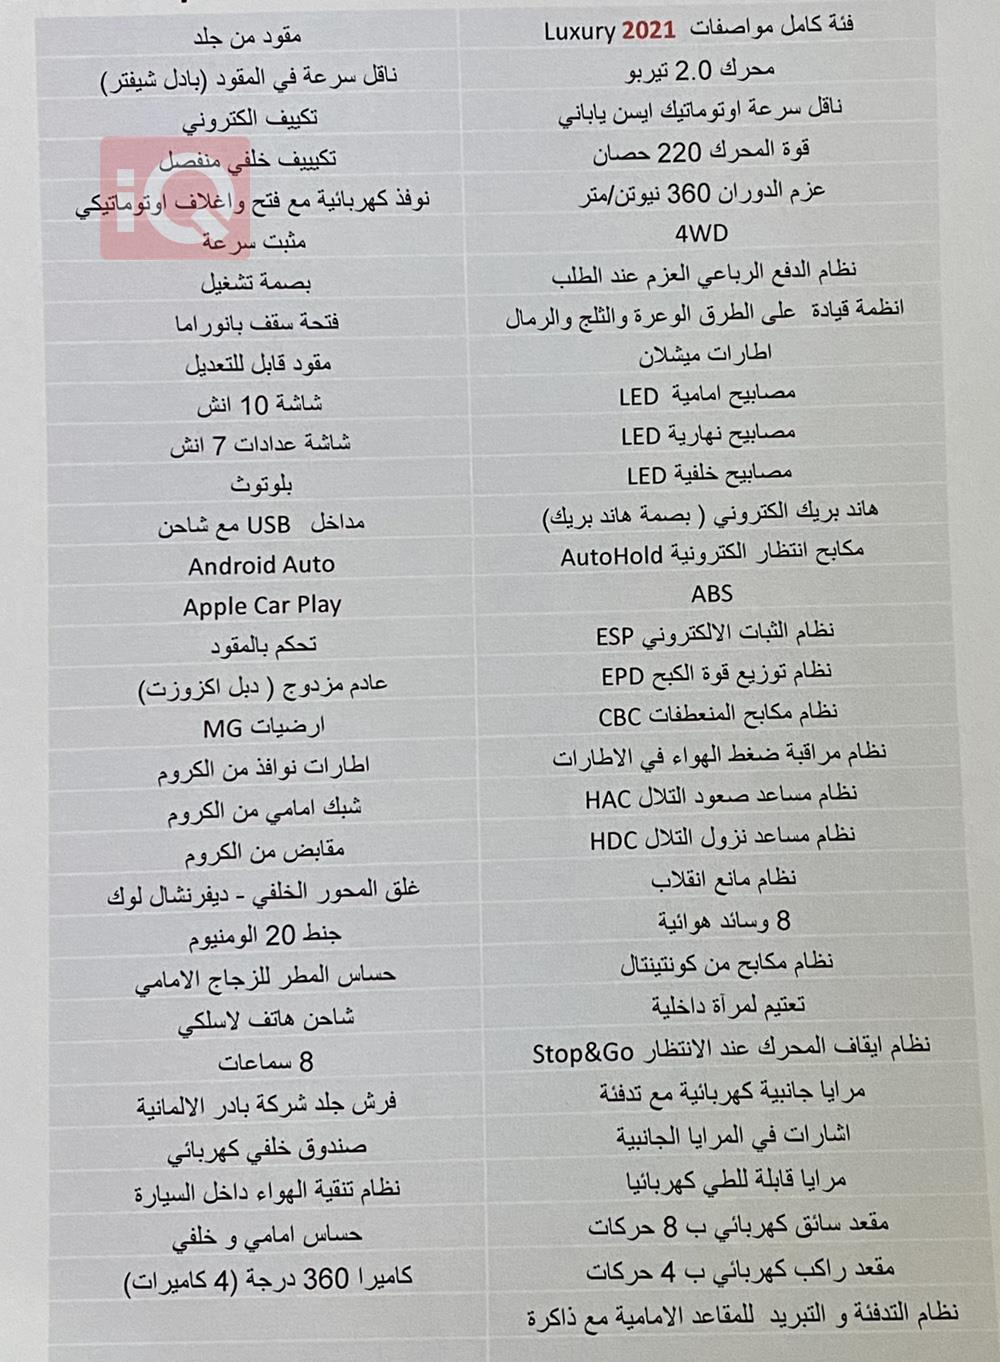 فئة كامل مواصفات Luxury 2021
محرك 2.0 تيربو
ناقل سرعة اوتوماتيك ايسن ياباني
قوة المحرك 220 حصان
عزم الدوران 360 نيوتن/متر
4WD
نظام الدفع الرباعي العزم عند الطلب
انظمة قيادة على الطرق الوعرة والثلج والرمال
اطارات ميشلان
مصابيح امامية LED
مصابيح نهارية LED
مصابيح خلفية LED
هاند بريك الكتروني ( بصمة هاند بريك)
مكابح انتظار الكترونية AutoHold
ABS
نظام الثبات الالكتروني ESP
نظام توزيع قوة الكبح EPD
نظام مكابح المنعطفات CBC
نظام مراقبة ضغط الهواء في الاطارات
نظام مساعد صعود التلال HAC
نظام مساعد نزول التلال HDC
نظام مانع انقلاب
8 وسائد هوائية
نظام مكابح من كونتينتال
تعتيم لمرآة داخلية
نظام ايقاف المحرك عند الانتظار Stop&Go
مرايا جانبية كهربائية مع تدفئة
اشارات في المرايا الجانبية
مرايا قابلة للطي كهربائيا
مقعد سائق كهربائي ب 8 حركات
مقعد راكب كهربائي ب 4 حركات
نظام التدفئة و التبريد للمقاعد الامامية مع ذاكرة
مقود من جلد
ناقل سرعة في المقود (بادل شيفتر)
تكييف الكتروني
تكيييف خلفي منفصل
نوفذ كهربائية مع فتح واغلاف اوتوماتيكي
مثبت سرعة
بصمة تشغيل
فتحة سقف بانوراما
مقود قابل للتعديل
شاشة 10 انش
شاشة عدادات 7 انش
بلوتوث
مداخل USB مع شاحن
Android Auto
Apple Car Play
تحكم بالمقود
عادم مزدوج ( دبل اكزوزت)
ارضيات MG
اطارات نوافذ من الكروم
شبك امامي من الكروم
مقابض من الكروم
غلق المحور الخلفي - ديفرنشال لوك
جنط 20 الومنيوم
حساس المطر للزجاج الامامي
شاحن هاتف لاسلكي
8 سماعات
فرش جلد شركة بادر الالمانية
صندوق خلفي كهربائي
نظام تنقية الهواء داخل السيارة
حساس امامي و خلفي
كاميرا 360 درجة (4 كاميرات)
iQ